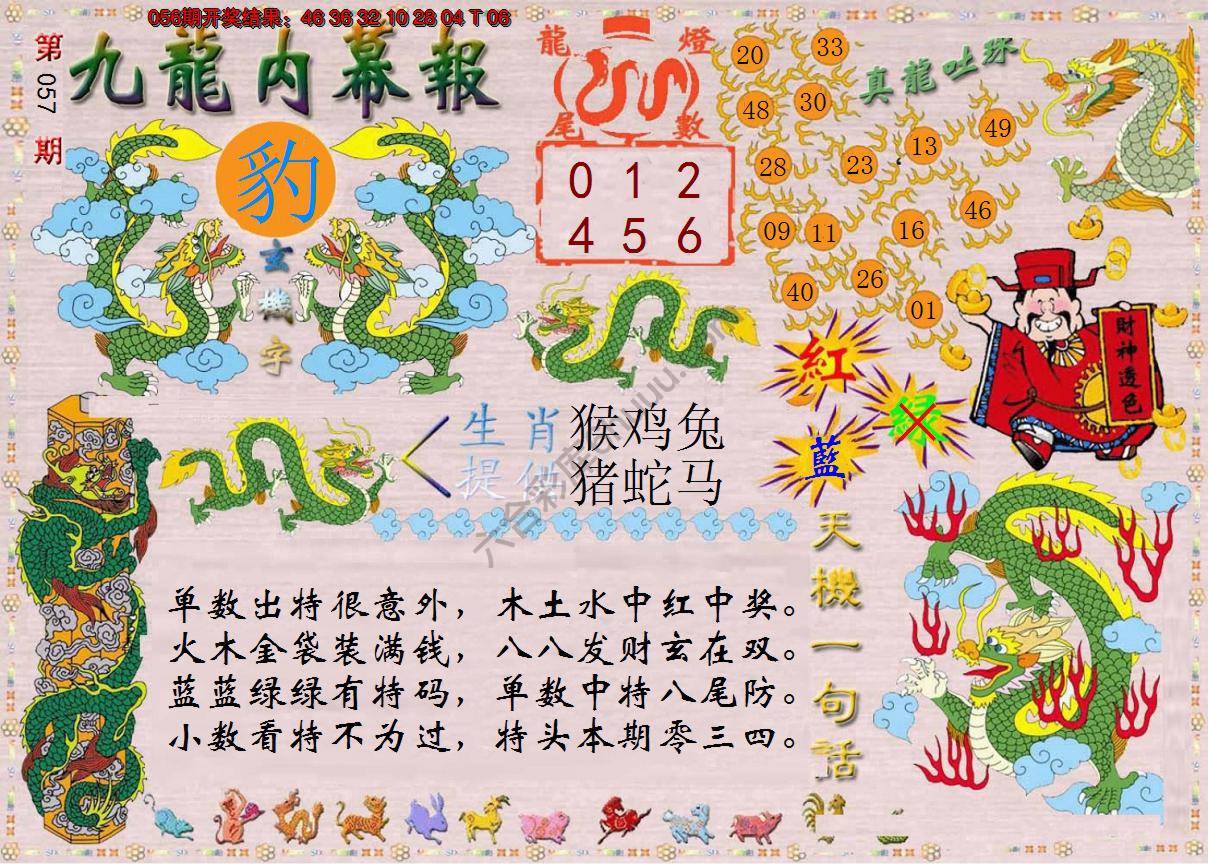 056期开奖结果：46 36 32 10 28 04 T 06
第057期
九龍内幕報
豹
玄機字
龍燈
尾數
0 1 2
4 5 6
真龍吐珠
20
33
48
30
49
13
28
23
46
09
11
16
26
40
01
財神透色
紅
绿
藍
生肖
提供
猴鸡兔
猪蛇马
天機一句話
单数出特很意外，木土水中红中奖。
火木金袋装满钱，八八发财玄在双。
蓝蓝绿绿有特码，单数中特八尾防。
小数看特不为过，特头本期零三四。